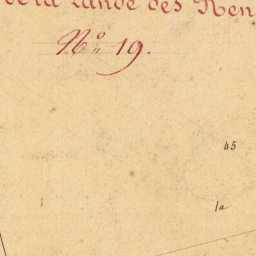 de la Lande des Ren
N° 19.
45
1a